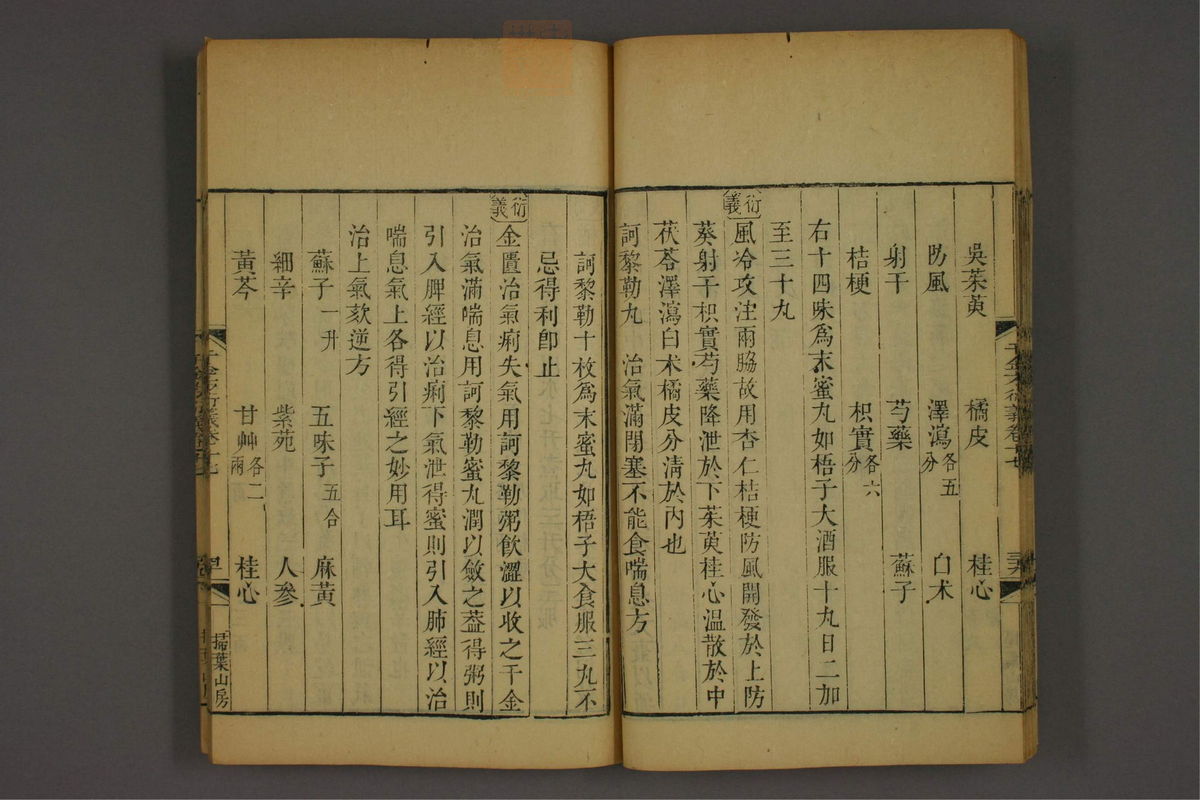 吳茱萸　橘皮　桂心
防風　澤瀉各五分　白朮
射干　芍藥　蘇子
桔梗　枳實各六分
右十四味爲末蜜丸如梧子大酒服十九日二加
至三十丸
衍義
風冷攻注兩脇故用杏仁桔梗防風開發於上防
葵射干枳實芍藥降泄於下茱萸桂心溫散於中
茯苓澤瀉白朮橘皮分淸於內也
訶黎勒丸　治氣滿閉塞不能食喘息方
訶黎勒十枚爲末蜜丸如梧子大食服三丸不
忌得利卽止
衍義
金匱治氣痢失氣用訶黎勒粥飮澀以收之千金
治氣滿喘息用訶黎勒蜜丸潤以斂之葢得粥則
引入脾經以治痢下氣泄得蜜則引入肺經以治
喘息氣上各得引經之妙用耳
治上氣欬逆方
蘇子一升　五味子五合　麻黃
細辛　紫苑　人參
黃芩　甘艸各二兩　桂心
掃葉山房